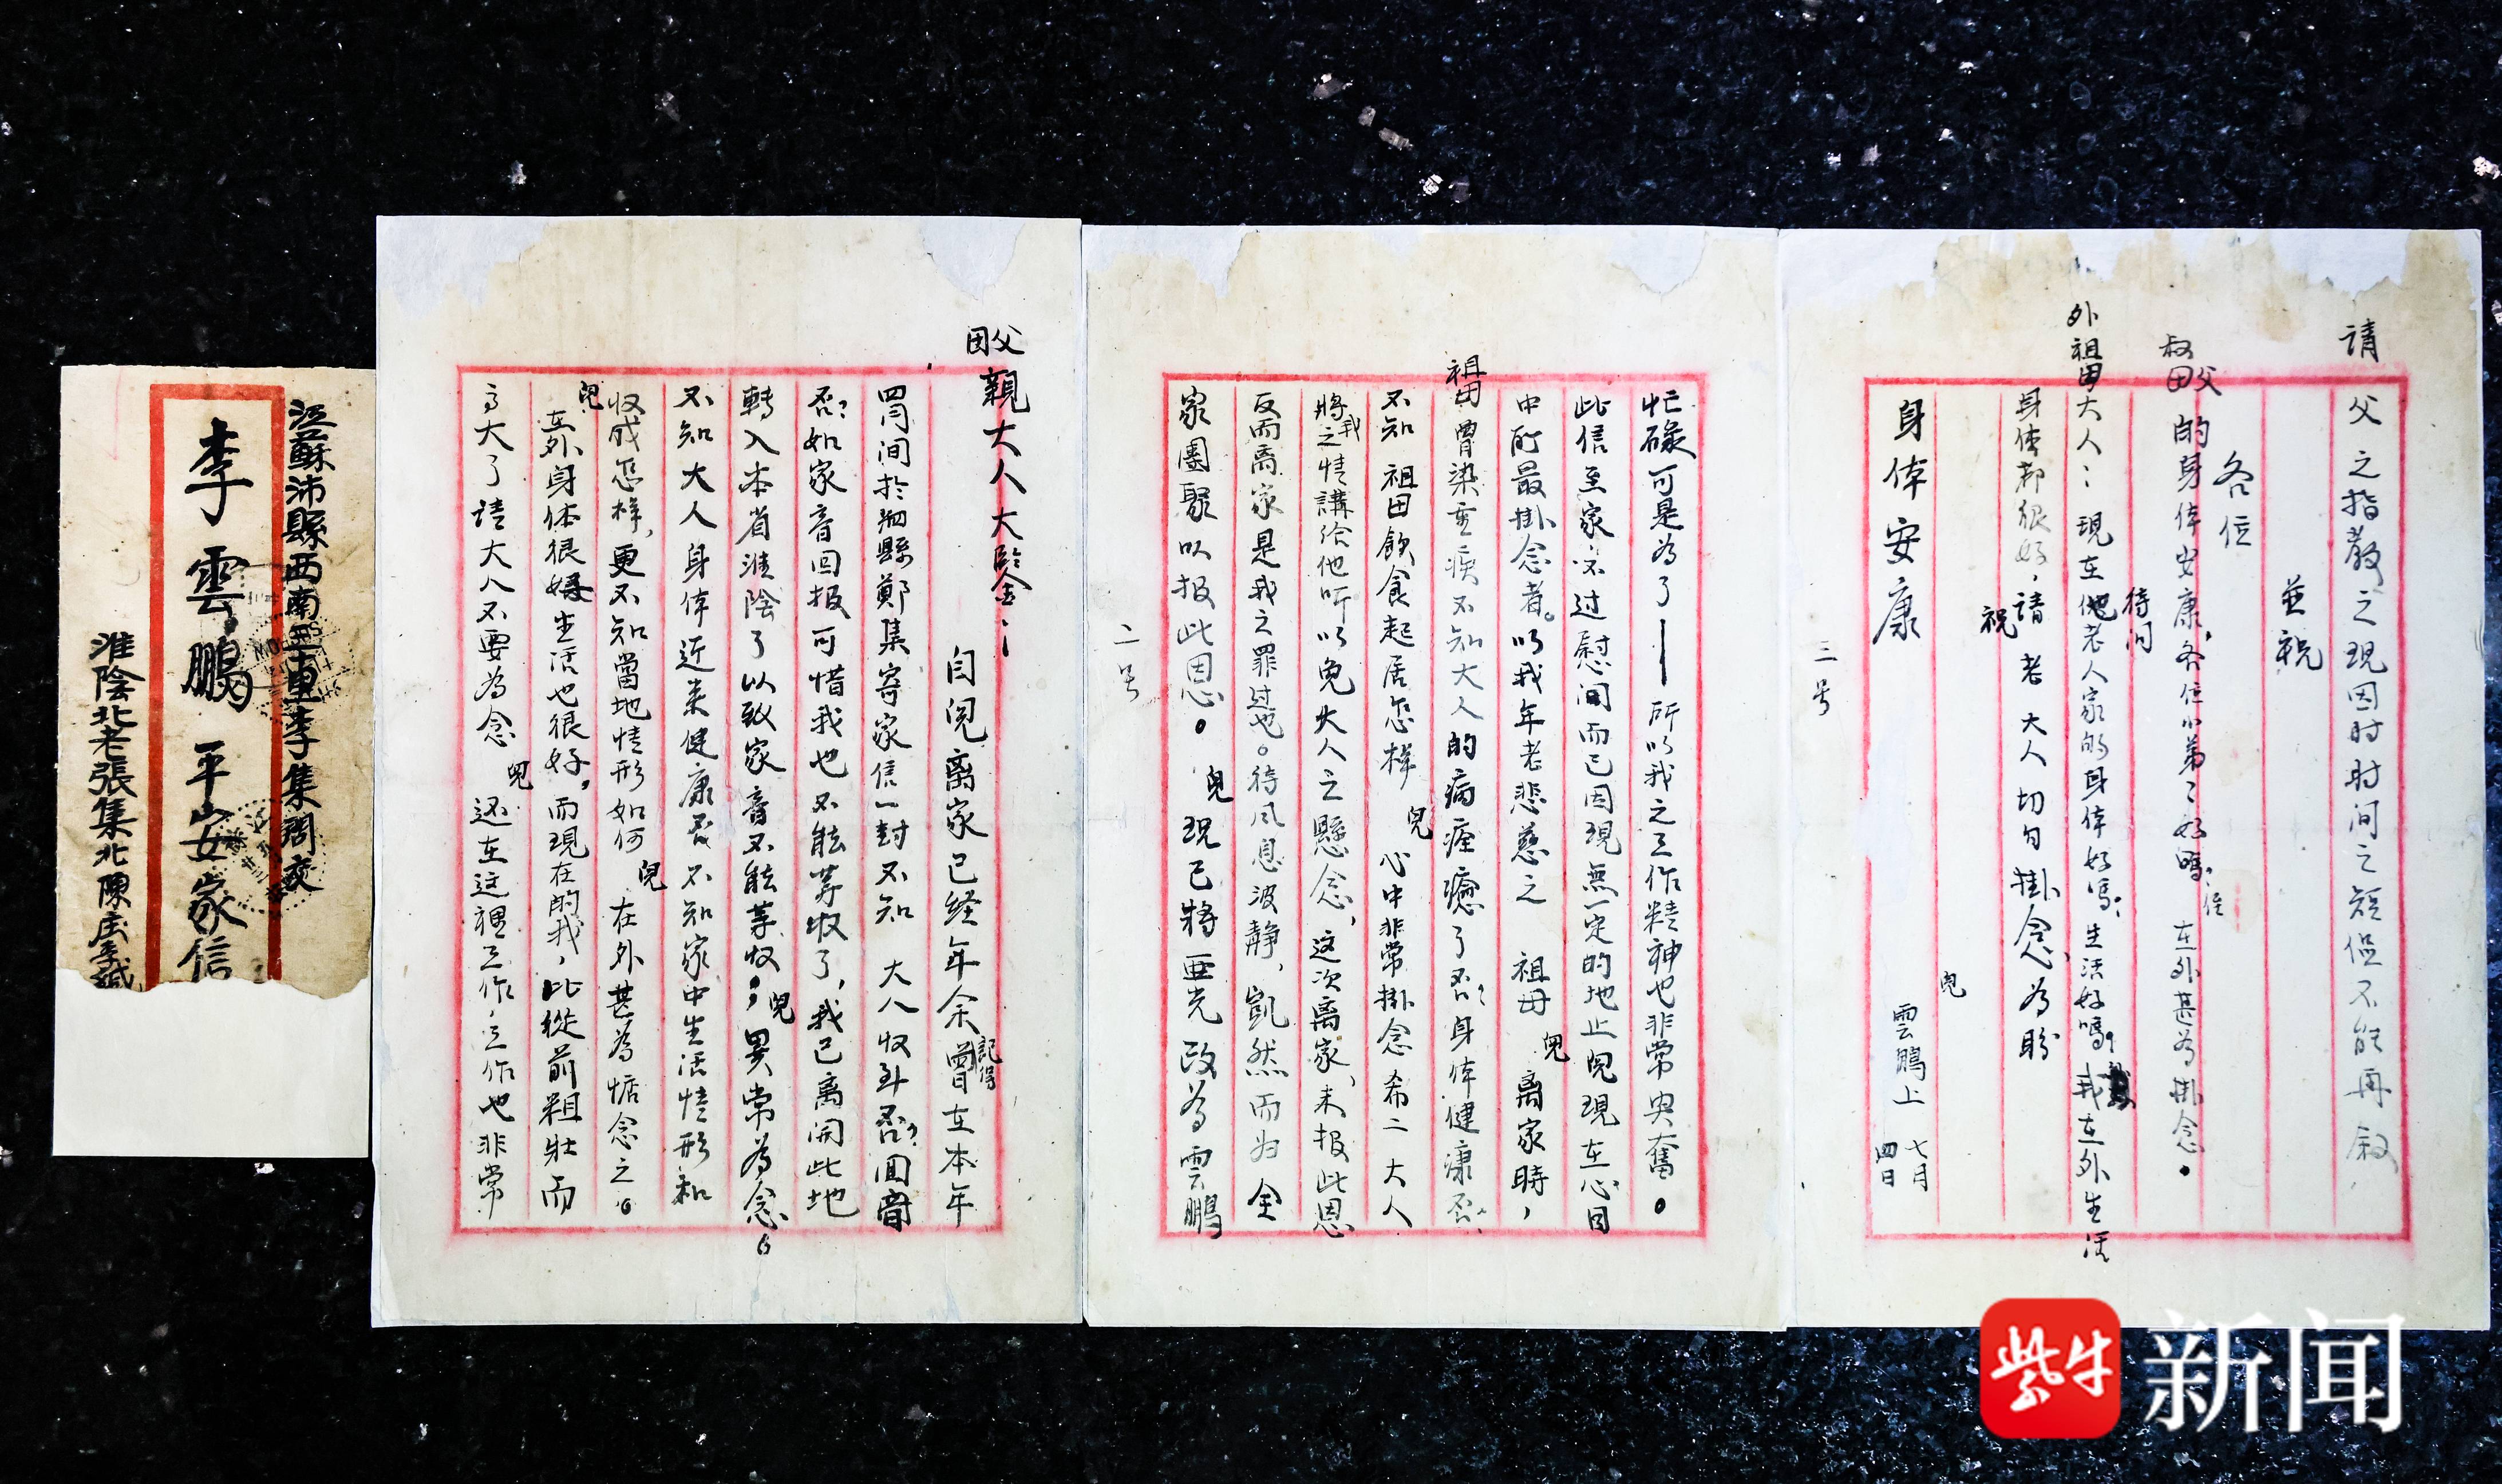 江蘇沛縣西南三重李集闁交
李雲鵬 平安家信
淮陰北老張集北陳庄李緘
父母親大人大鑒：
自兒离家已经年余記得曾在本年
四月间於泗縣鄭集寄家信一封不知 大人收到否？回音
否？如家音回报可惜我也不能等收了，我已离开此地
轉入本省淮陰了以致家音不能等收，兒異常為念。
不知大人身体近来健康否不知家中生活情形和
收成怎样，更不知當地情形如何 兒在外甚為惦念之。
兒在外身体很好生活也很好，而現在的我，比從前粗壯而
高大了请大人不要為念 兒还在这裡工作，工作也非常
忙碌可是為了——所以我之工作精神也非常兴奮。
此信至家不过慰问而已因現無一定的地止兒現在心目
中所最掛念者。以我年老悲慈之 祖母 兒离家時，
祖母曾染重疾不知大人的病痊癒了否？身体健康否？
不知 祖母飲食起居怎样 兒心中非常掛念希二大人
將我之情講给他听以免大人之懸念，这次离家，未报此恩
反而离家是我之罪过也。待风息波静，凱然而归全
家團聚以报此恩。 兒現已將亜光改為雲鵬
二号
请
父之指教之現因时时间之短促不能再叙
並祝
各位
叔父母的身体安康，各位小弟弟好嗎？侄在外甚為掛念。
待问
外祖母大人：現在他老人家的身体好嗎？生活好嗎？我在外生活
身体都很好，請老大人切勿掛念為盼
祝
身体安康
兒 雲鵬上 七月四日
三号
紫牛新闻